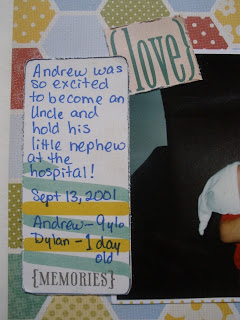 {love}
Andrew was
so excited
to become an
Uncle and
hold his
little nephew
at the
hospital!
Sept 13, 2001
Andrew - 9 y/o
Dylan - 1 day
old
{MEMORIES}